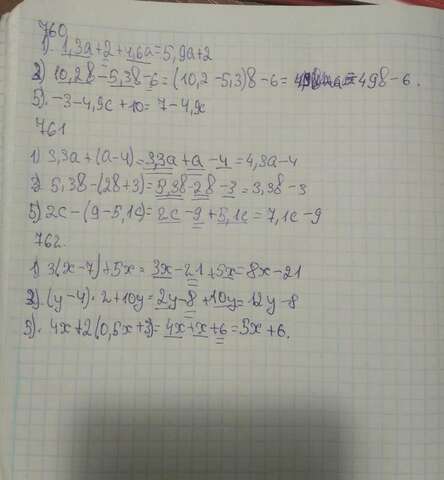 760
1). 1,3a+2+4,6a=5,9a+2
2) 10,2в-5,3в-6=(10,2-5,3)в-6= 4,9в-6.
5). -3-4,9x+10=7-4,9x
761
1) 3,3a+(a-4)=3,3a+a-4=4,3a-4
3) 5,3в-(2в+3)=5,3в-2в-3=3,3в-3
5) 2c-(9-5,1c)=2c-9+5,1c=7,1c-9
762.
1) 3(x-7)+5x=3x-21+5x=8x-21
3). (y-4)·2+10y=2y-8+10y=12y-8
5). 4x+2(0,5x+3)=4x+x+6=5x+6.